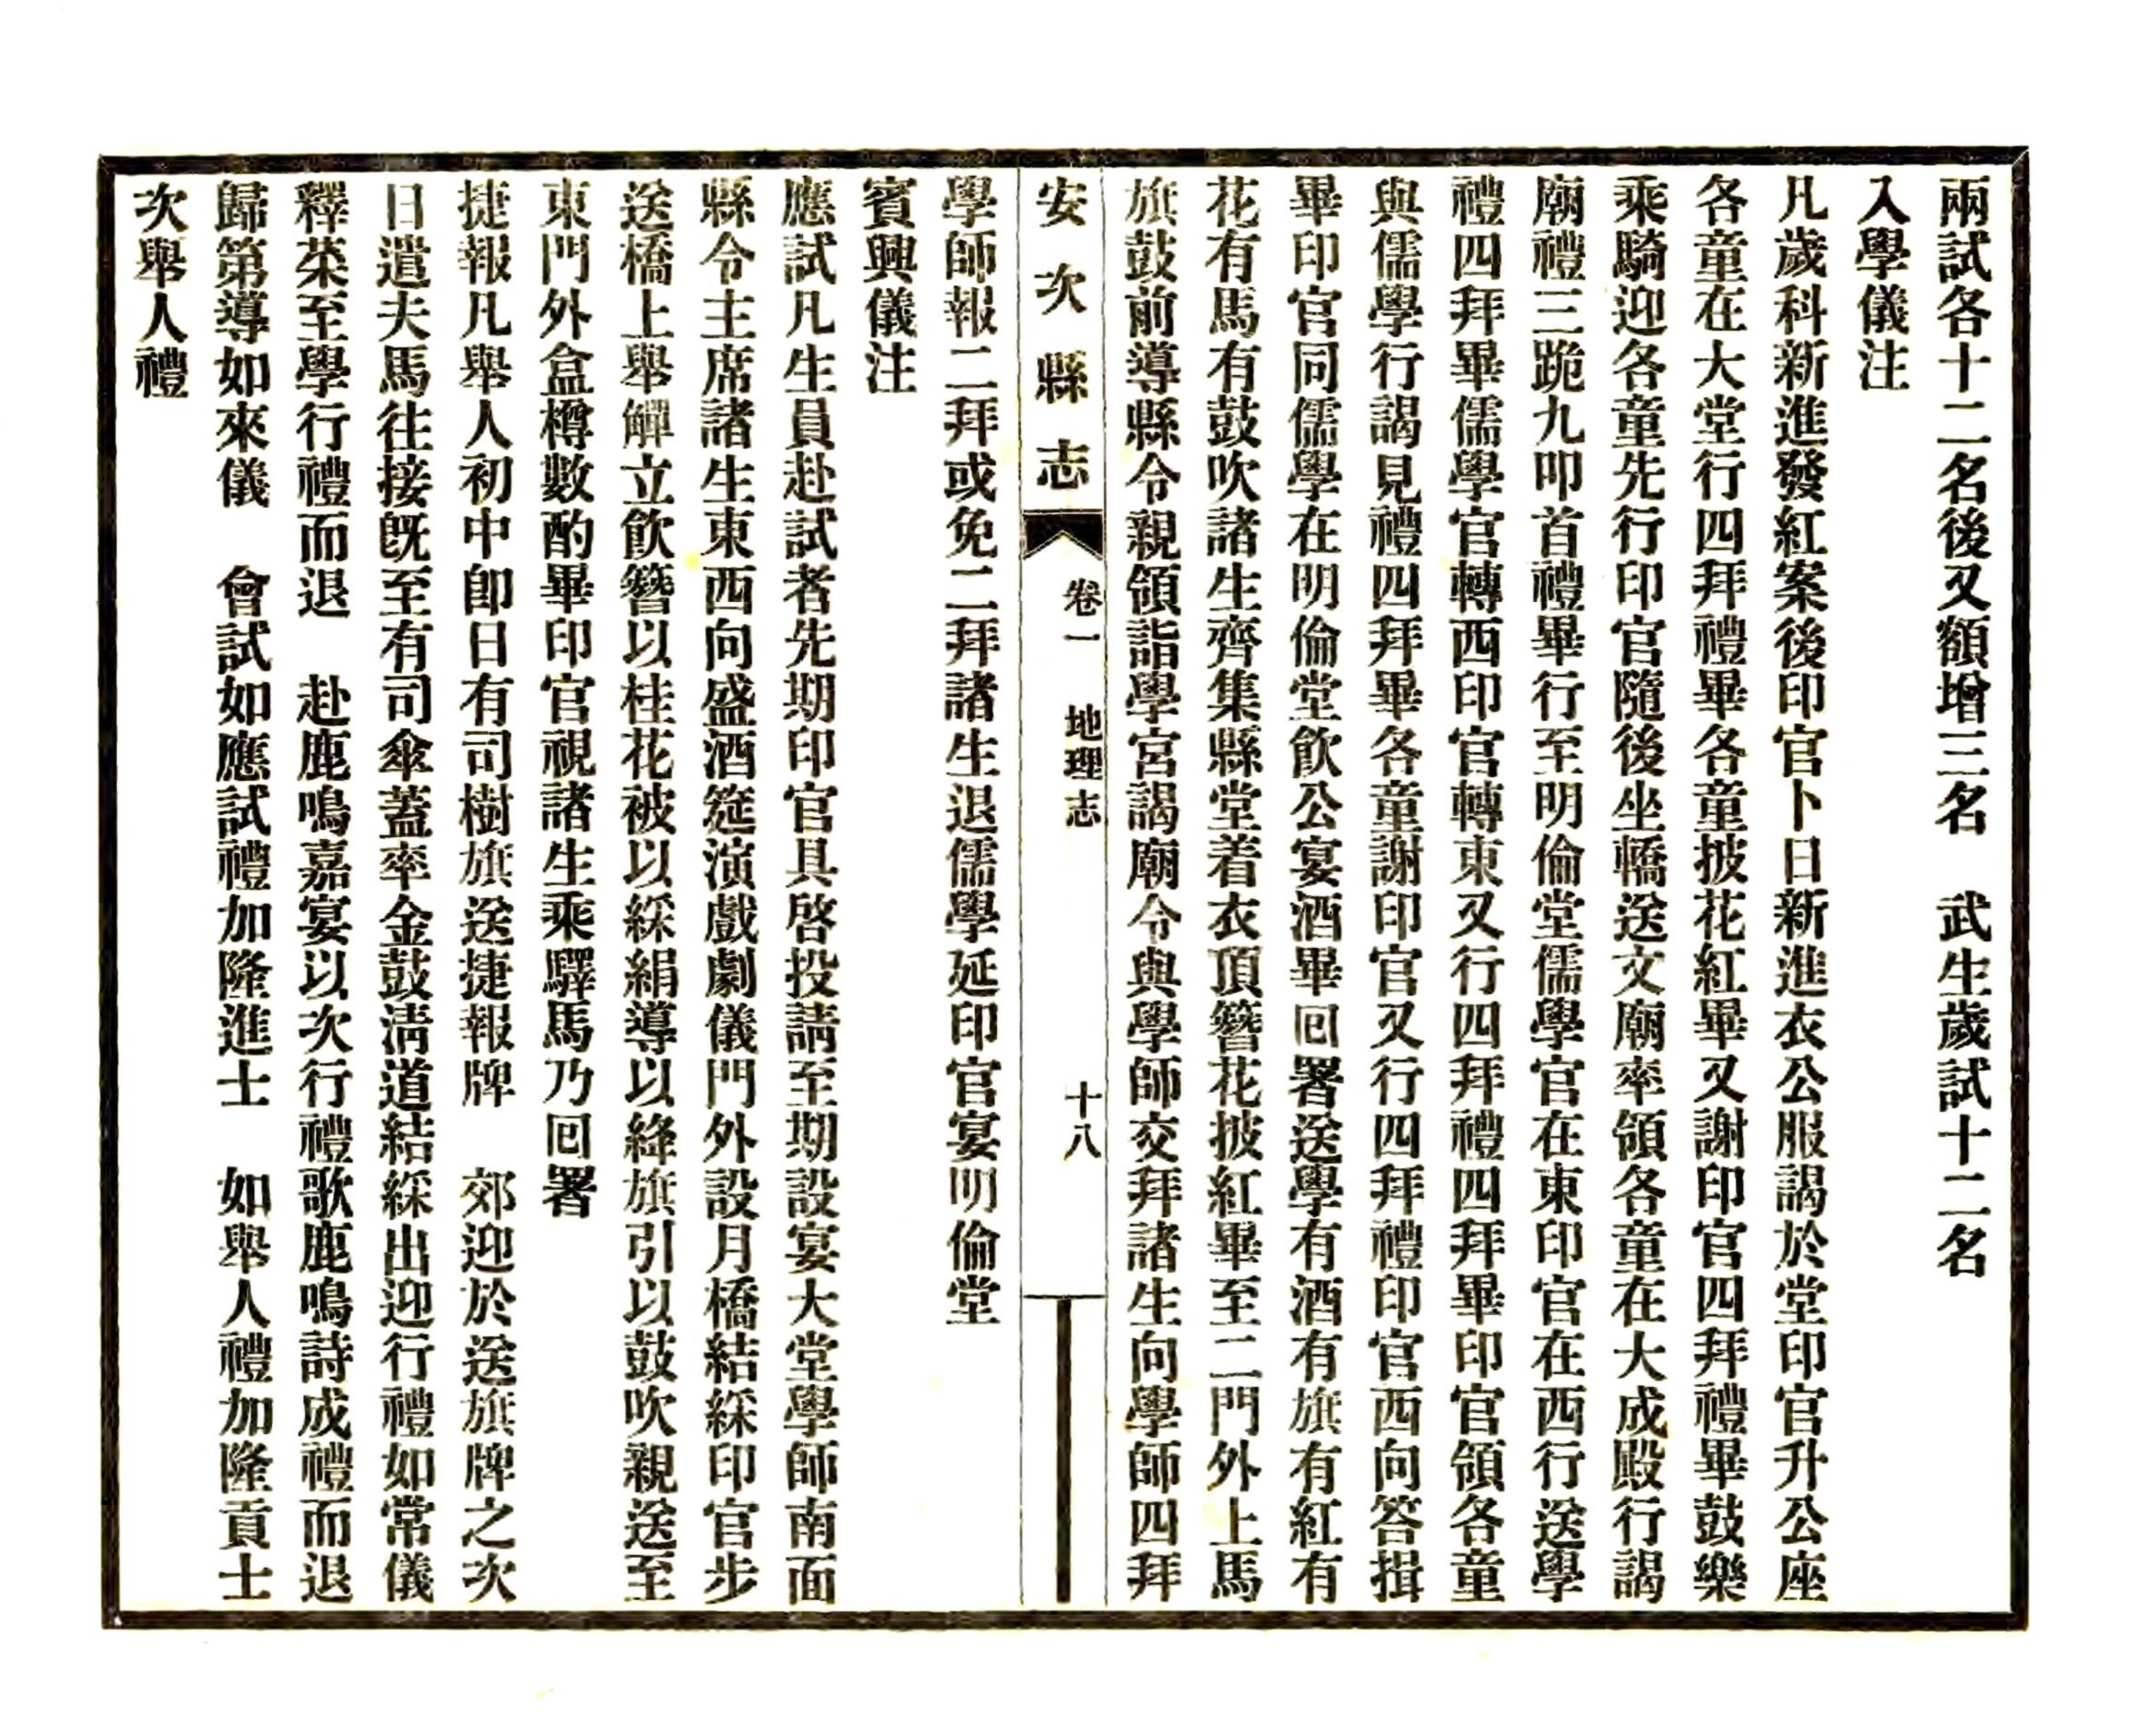 兩試各十二名後又額增三名　武生歲試十二名
入學儀注
凡歲科新進發紅案後印官卜日新進衣公服謁於堂印官升公座
各童在大堂行四拜禮畢各童披花紅畢又謝印官四拜禮畢鼓樂
乘騎迎各童先行印官隨後坐轎送文廟率領各童在大成殿行謁
廟禮三跪九叩首禮畢行至明倫堂儒學官在東印官在西行送學
禮四拜畢儒學官轉西印官轉東又行四拜禮四拜畢印官領各童
與儒學行謁見禮四拜畢各童謝印官又行四拜禮印官西向答揖
畢印官同儒學在明倫堂飲公宴酒畢回署送學有酒有旗有紅有
花有馬有鼓吹諸生齊集縣堂着衣頂簪花披紅畢至二門外上馬
旗鼓前導縣令親領詣學宮謁廟令與學師交拜諸生向學師四拜
安次縣志
卷一　地理志
十八
學師報二拜或免二拜諸生退儒學延印官宴明倫堂
賓興儀注
應試凡生員赴試者先期印官具啓投請至期設宴大堂學師南面
縣令主席諸生東西向盛酒筵演戲劇儀門外設月橋結綵印官步
送橋上舉觶立飲簪以桂花被以綵絹導以絳旗引以鼓吹親送至
東門外盒樽數酌畢印官視諸生乘驛馬乃回署
捷報凡舉人初中卽日有司樹旗送捷報牌　郊迎於送旗牌之次
日遣夫馬往接旣至有司傘蓋率金鼓淸道結綵出迎行禮如常儀
釋菜至學行禮而退　赴鹿鳴嘉宴以次行禮歌鹿鳴詩成禮而退
歸第導如來儀　會試如應試禮加隆進士　如舉人禮加隆貢士
次舉人禮